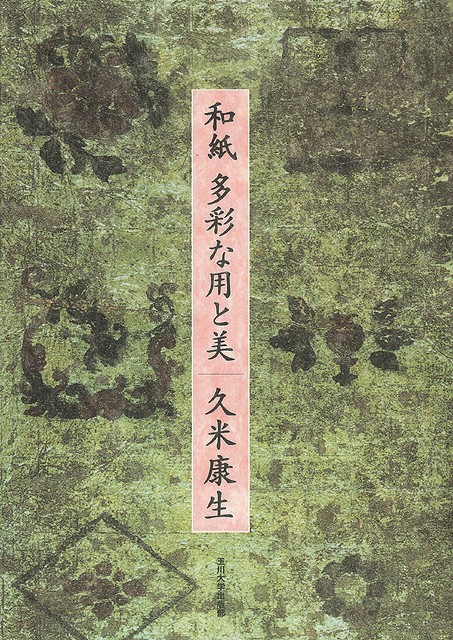 和紙 多彩な用と美
久米康生
玉川大学出版部